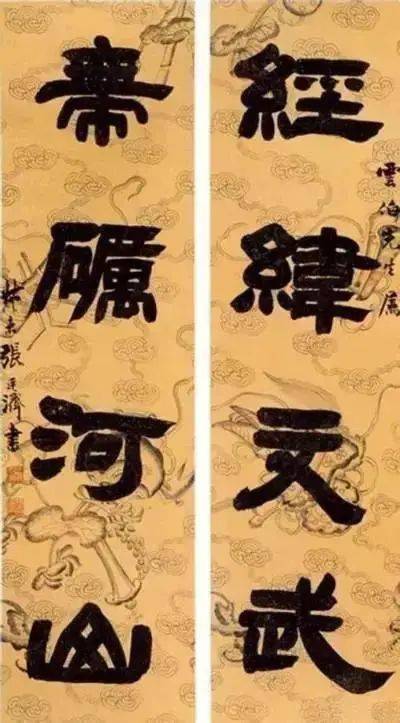 雲伯先生屬
經緯文武
帶礪河山
叔未張廷濟書